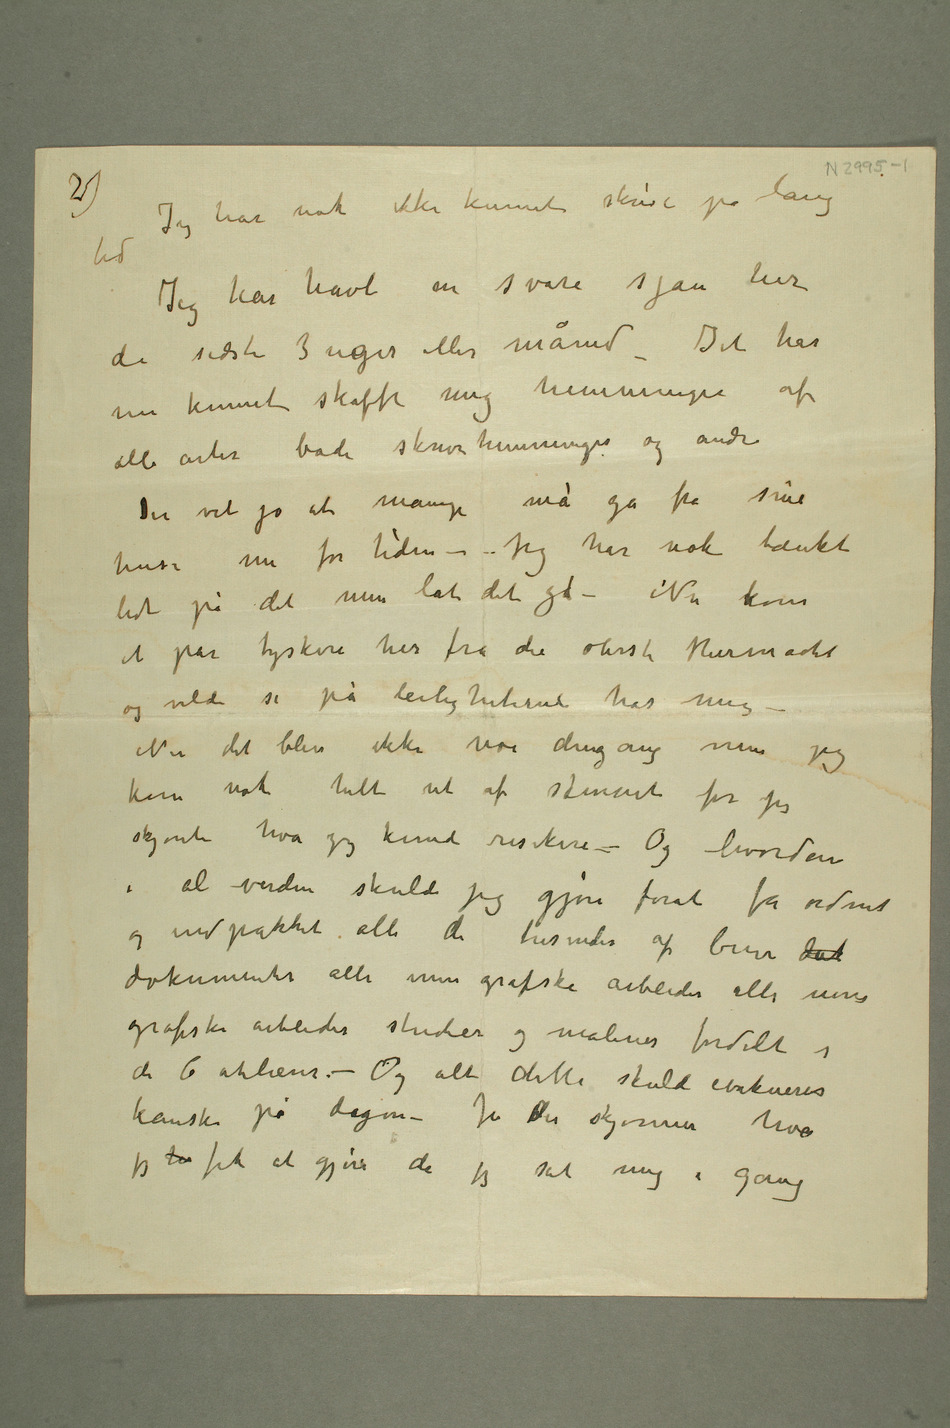 N 2995-1
2)
Jeg har nok ikke kunnet skrive på lang
tid
Jeg har havt en svare sjau her
de sidste 3 uger eller måned – Det har
nu kunnet skaffe mig hemninger af
alle arter både skrivehemninger og andre
Du vet jo at mange må gå fra sine
huse nu for tiden – Jeg har nok tænkt
lidt på det men lat det gå – Nu kom
et par tyskere her fra den øverste Hærmacht
og vilde se på leilighetene hos mig –
Nu det blev ikke noe dengang men jeg
kom nok helt ut af skinnet for jeg
skjønte hva jeg kunde risikere – Og hvordan
i al verden skulde jeg gjøre forat få ordnet
og indpakket alle de tusinder af breve dok
dokumenter alle mine grafiske arbeider alle mine
grafiske arbeider studier og malerier fordelt i
de 6 atelierer. – Og alt dette skulde evakueres
kanske på dagen – Ja Du skjønner hva
jeg ha fik at gjøre da jeg sat mig i gang